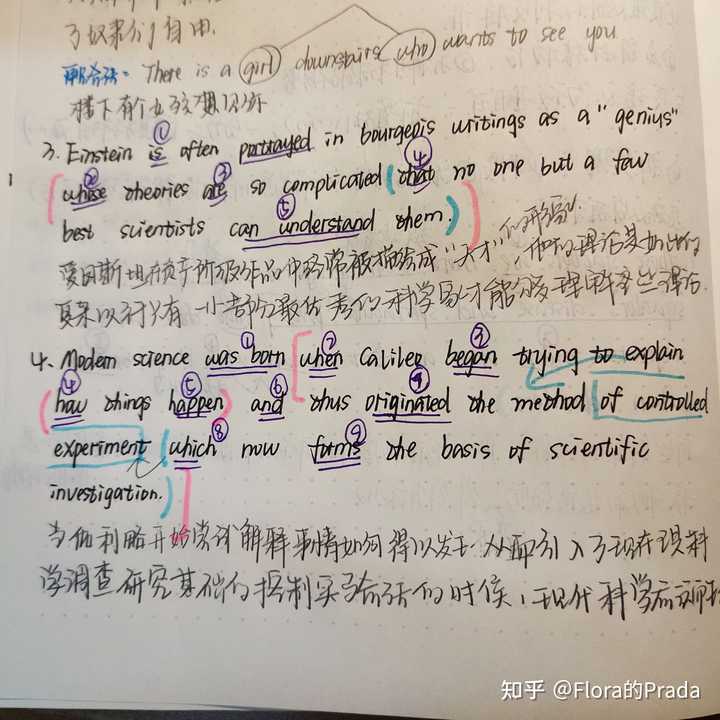 了奴隶们自由.
There is a girl downstairs who wants to see you
楼下有个女孩想见你
3. Einstein ① is often portrayed in bourgeois writings as a "genius"
② whose theories ③ are so complicated (④ that no one but a few
best scientists ⑤ can understand them.)
爱因斯坦在资产阶级作品中经常被描绘成"天才"的形象, 他的理论是如此的
复杂以 只有一小部分最优秀的科学家才能够理解这些理论.
4. Modern science ① was born ② when Galileo ③ began trying to explain
(④ how things ⑤ happen) ⑥ and thus ⑦ originated the method of controlled
experiment (⑧ which now ⑨ forms the basis of scientific
investigation.)
当伽利略开始尝试解释事情如何得以发生 从而引入了现在 科
学调查研究基础的控制实验 的时候, 现代科学
知乎 @Flora的Prada